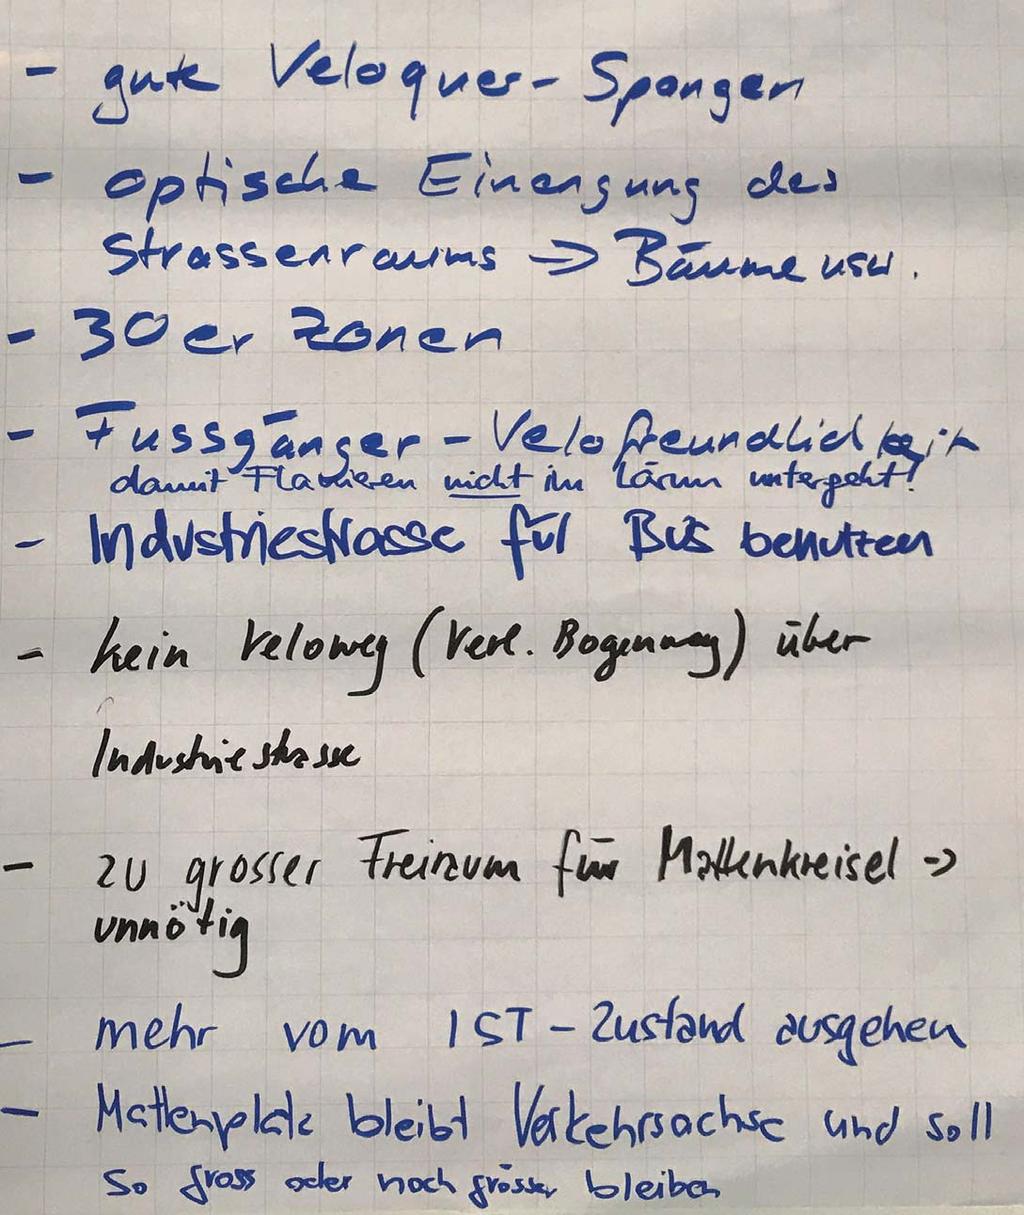 - gute Veloquer-Spangen
- optische Einengung des
Strassenraums => Bäume usw.
- 30er Zonen
- Fussgänger - Velofreundlichkeit
damit Flanieren nicht im Lärm untergeht!
- Industriestrasse für Bus benutzen
- kein Veloweg (Verl. Bogenweg) über
Industriestrasse
- zu grosser Freiraum für Mattenkreisel ->
unnötig
- mehr vom IST-Zustand ausgehen
- Mattenplatz bleibt Verkehrsachse und soll
so gross oder noch grösser bleiben